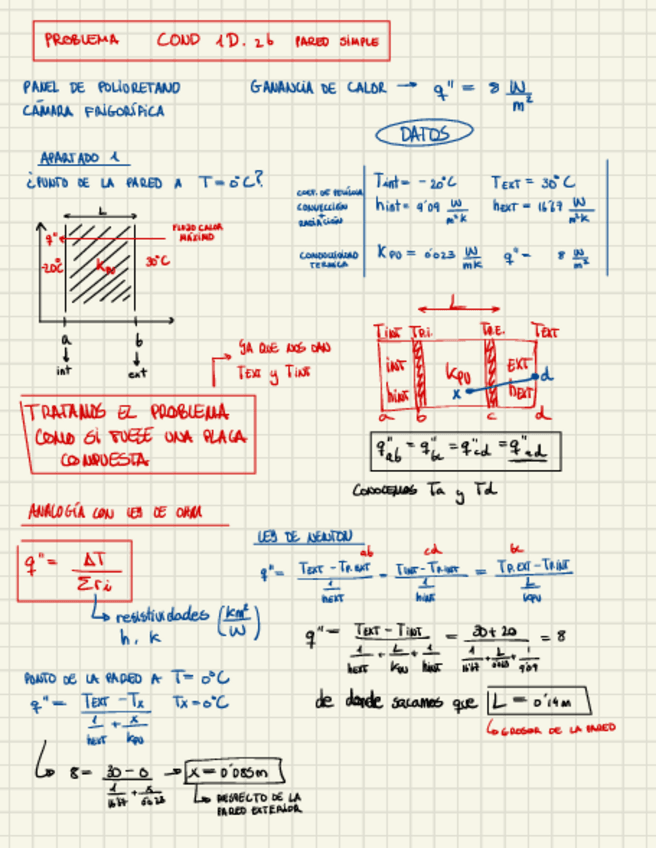 PROBLEMA COND 1D. 26 PARED SIMPLE
PANEL DE POLIURETANO
CÁMARA FRIGORÍFICA
GANANCIA DE CALOR → q'' = 8 W/m²
DATOS
APARTADO 1
¿PUNTO DE LA PARED A T=0°C?
COEF. DE PELÍCULA
CONVECCIÓN
+
RADIACIÓN
Tint = -20°C TEXT = 30°C
hint = 9'09 W/m²K hEXT = 16'67 W/m²K
CONDUCTIVIDAD
TÉRMICA
KPU = 0'023 W/mK q'' = 8 W/m²
L
q''
FLUJO CALOR
MÁXIMO
-20°C KPU 30°C
a b
int ext
YA QUE NOS DAN
TEXT y TINT
TRATAMOS EL PROBLEMA
COMO SI FUESE UNA PLACA
COMPUESTA
L
TINT TP.I. TP.E. TEXT
INT KPU EXT d
hint x hEXT
a b c d
q''ab = q''bc = q''cd = q''ad
CONOCEMOS Ta y Td
ANALOGÍA CON LEY DE OHM
q'' = ΔT / Σri
resistividades (Km²/W)
h, K
LEY DE NEWTON
ab cd bc
q'' = (TEXT - TP.EXT) / (1/hEXT) = (TINT - TP.INT) / (1/hINT) = (TP.EXT - TP.INT) / (L/KPU)
q'' = (TEXT - TINT) / (1/hEXT + L/KPU + 1/hINT) = (30+20) / (1/16'67 + L/0'023 + 1/9'09) = 8
de donde sacamos que L = 0'14m
GROSOR DE LA PARED
PUNTO DE LA PARED A T= 0°C
q'' = (TEXT - Tx) / (1/hEXT + x/KPU) Tx = 0°C
8 = (30 - 0) / (1/16'67 + x/0'023) → x = 0'085m
RESPECTO DE LA
PARED EXTERIOR